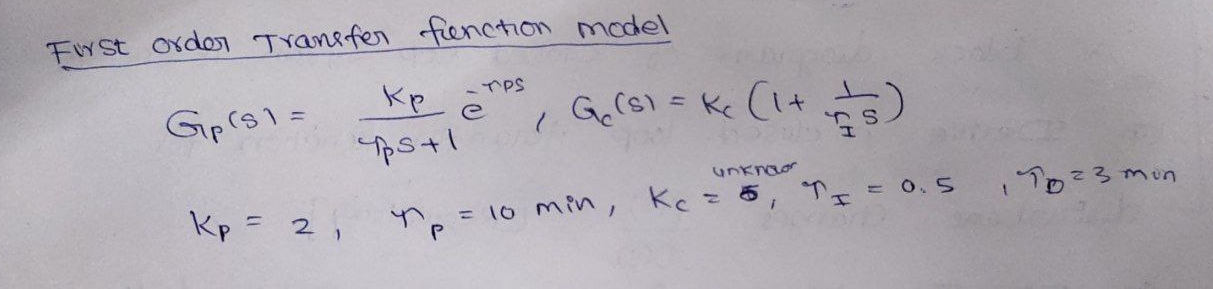 First order Transfer function model
Gp(s) = Kp / τps+1 e^-τDs , Gc(s) = Kc (1 + 1/τIs)
unknown
Kp = 2, τp = 10 min, Kc = 5, τI = 0.5 , τD = 3 min